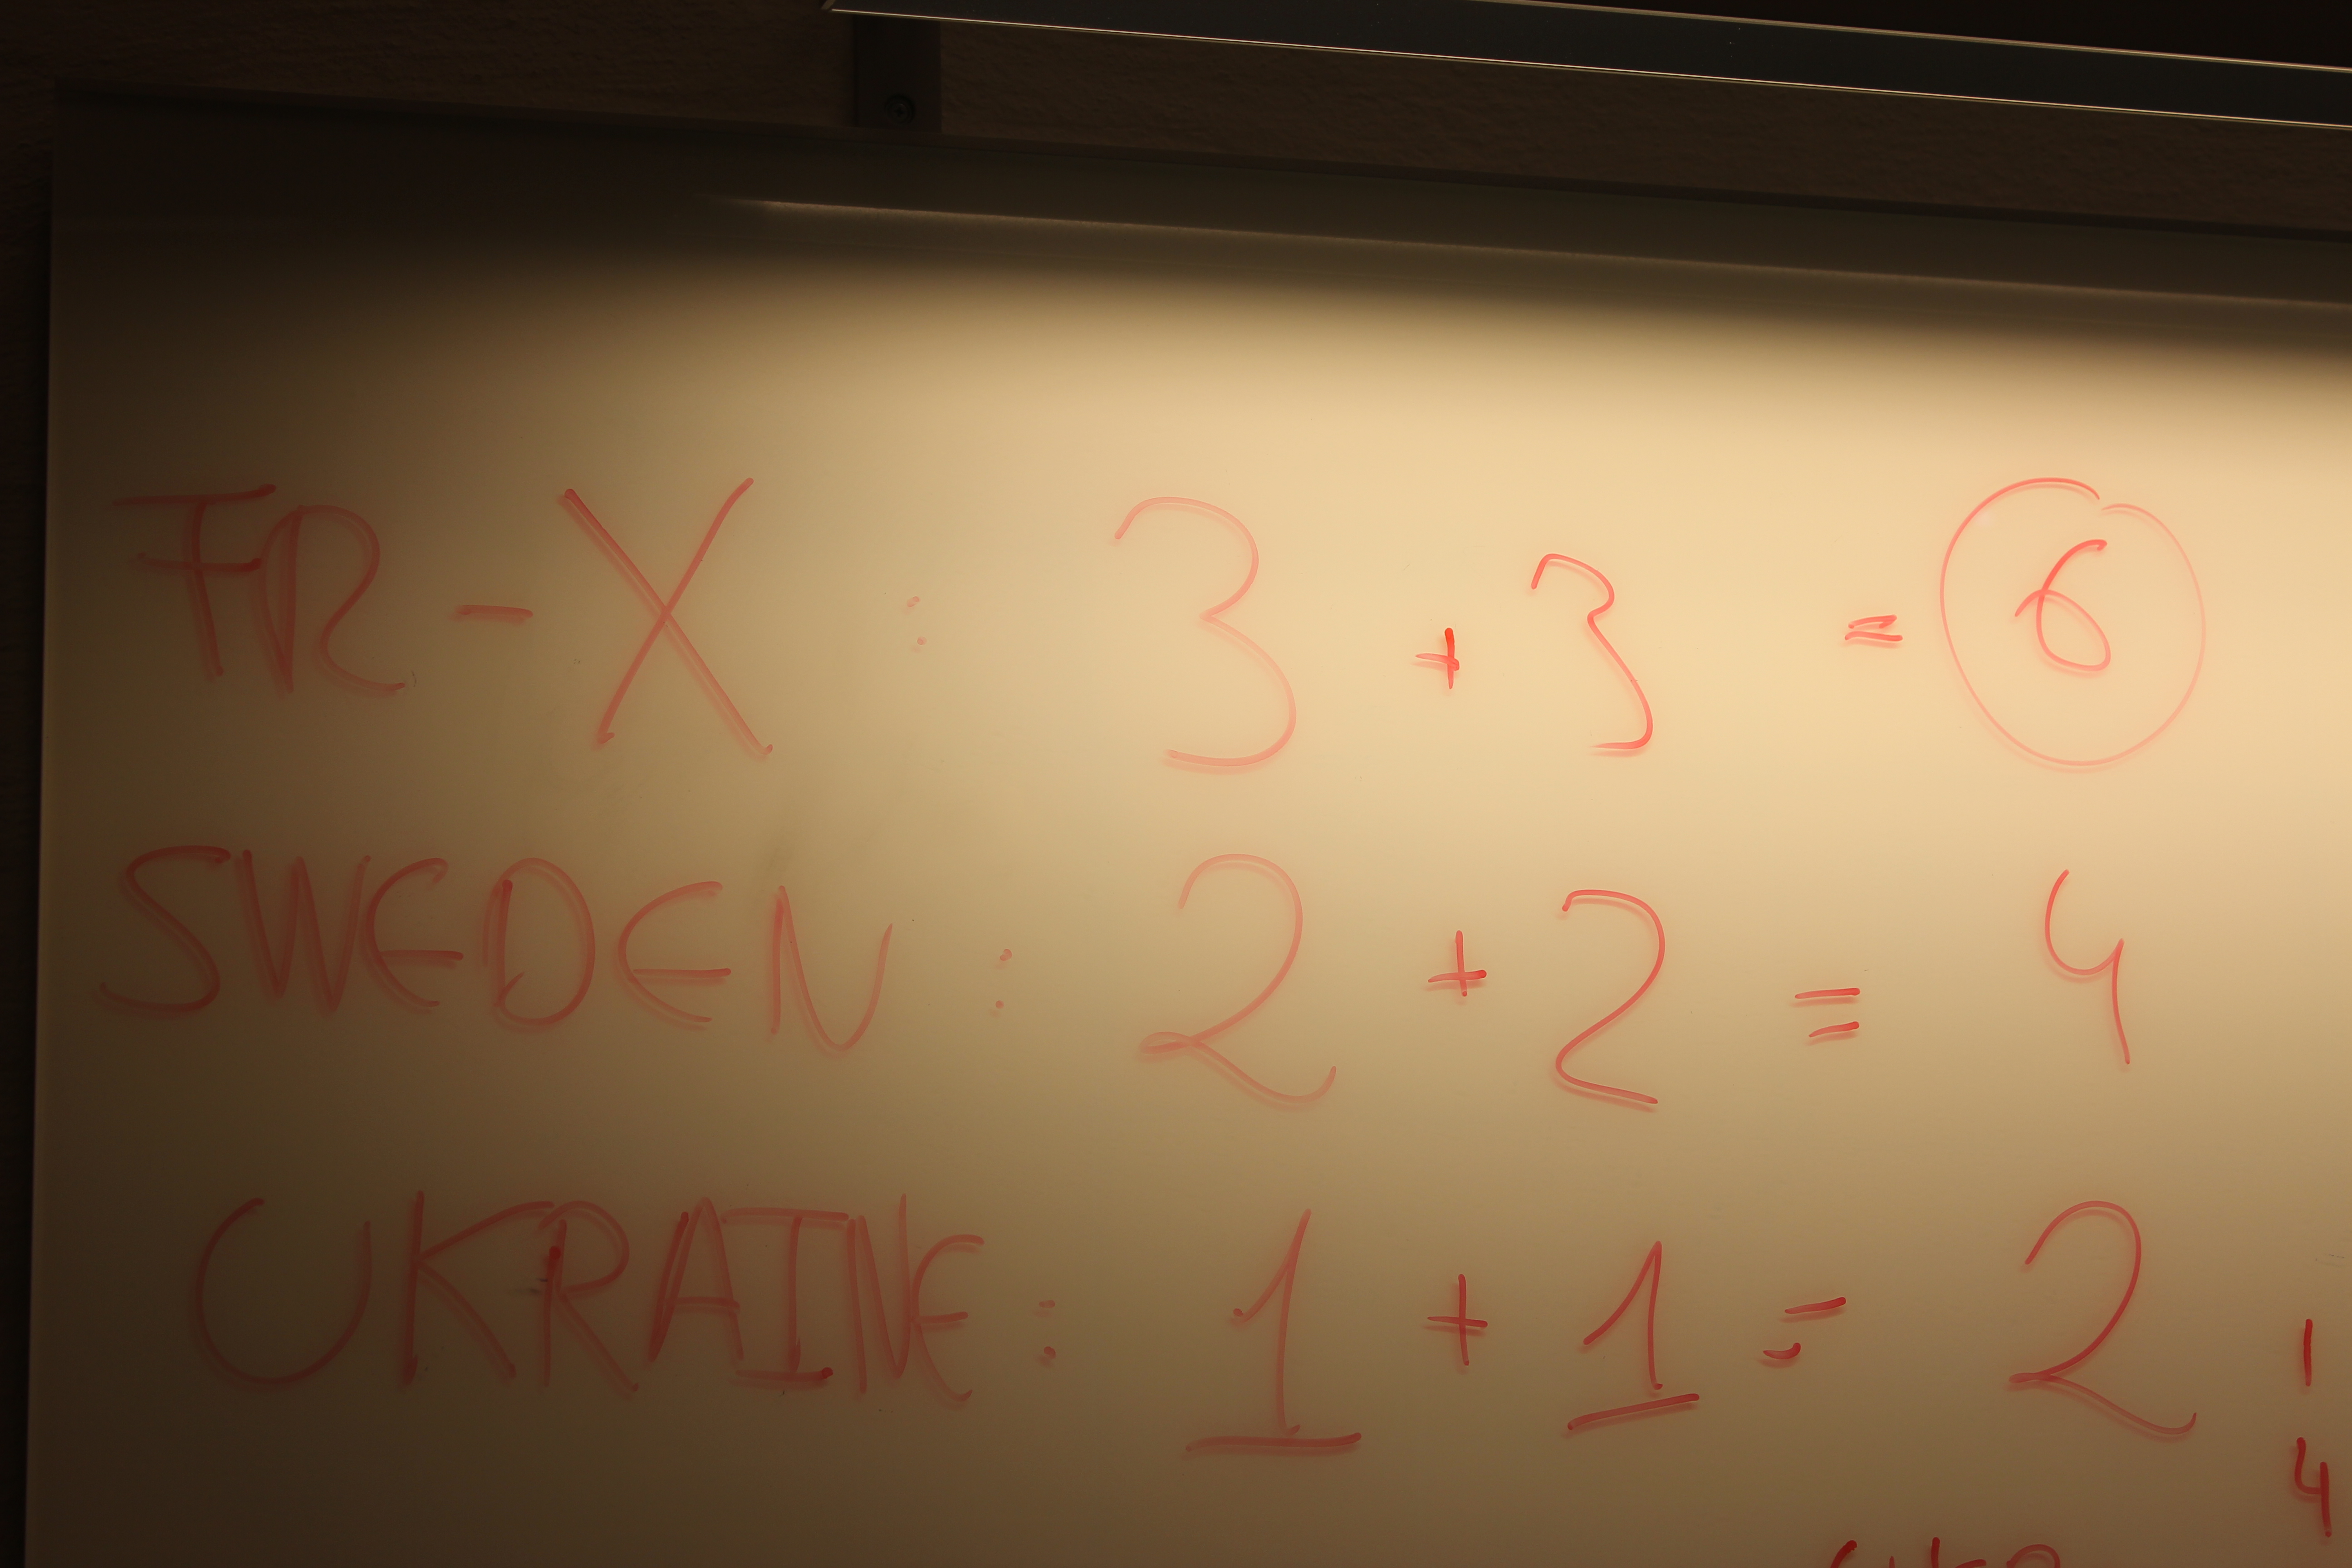 FR-X : 3 + 3 = 6
SWEDEN : 2 + 2 = 4
UKRAINE : 1 + 1 = 2
1
4